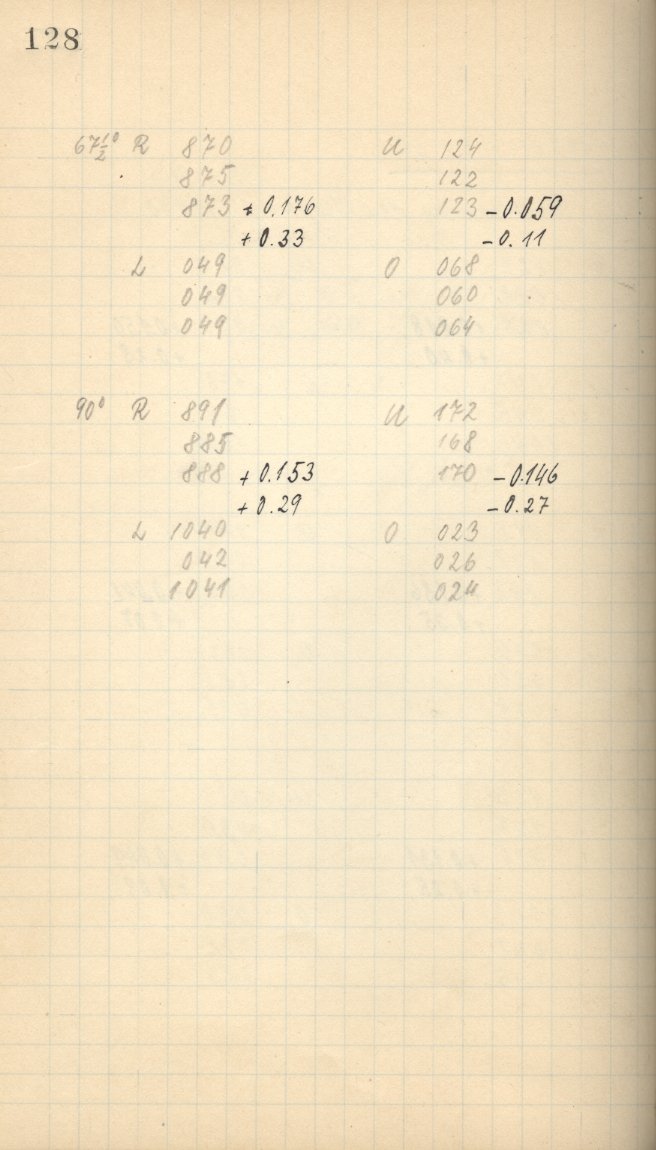 128
67½° R 870 U 124
875 122
873 + 0.176 123 - 0.059
+ 0.33 - 0.11
L 049 O 068
049 060
049 064
90° R 891 U 172
885 168
888 + 0.153 170 - 0.146
+ 0.29 - 0.27
L 1040 O 023
042 026
1041 024